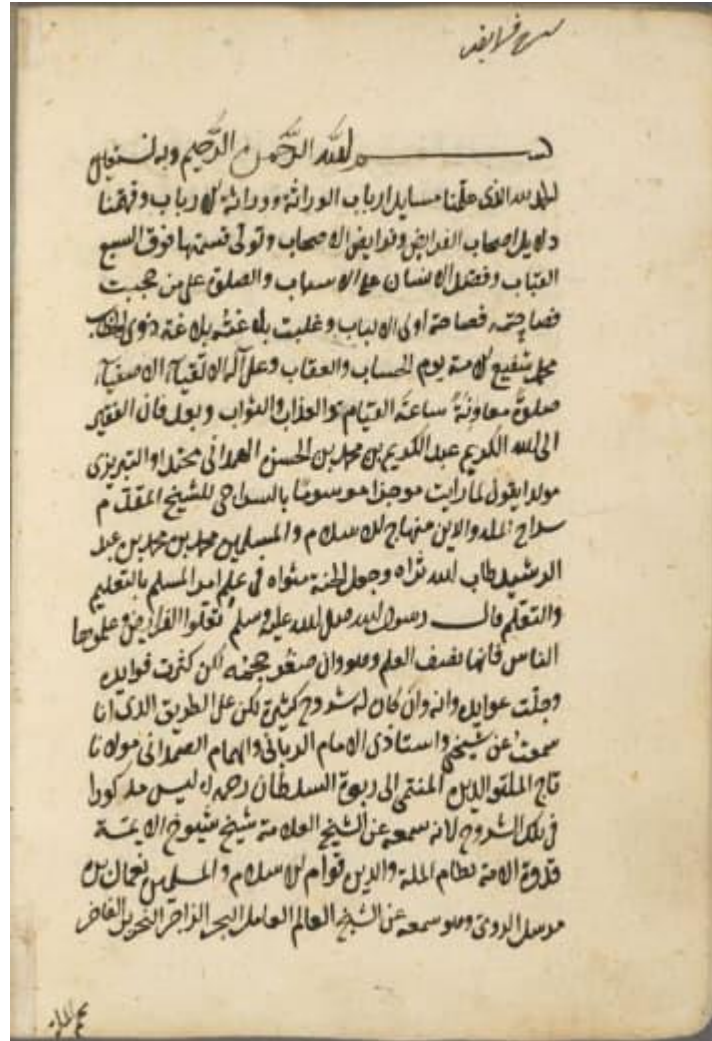 شرح فرايض
بسم الله الرحمن الرحيم وبه نستعين
الحمد لله الذى علمنا مسايل ارباب الوراثة ووراثة الارباب وفهمنا
دلايل اصحاب الفرايض وفرايض الاصحاب وتولى قسمتها فوق السبع
القباب وفضل الانسان على الاسباب والصلوة على من عجبت
فصاحته فصاحة اولى الالباب وغلبت بلاغته بلاغة ذوى الخطاب
محمد شفيع الامة يوم الحساب والعقاب وعلى آله الاتقياء الاصفياء
صلوة معاونة ساعة القيام والعذاب والثواب وبعد فان الفقير
الى الله الكريم عبد الكريم بن محمد بن الحسن الهمدانى محتدا والتبريزى
مولدا يقول لما رايت موجزا موسوما بالسراجى للشيخ المقدم
سراج الملة والدين منهاج الاسلام والمسلمين محمد بن محمد بن عبد
الرشيد طاب الله ثراه وجعل الجنة مثواه فى علم امر المسلم بالتعليم
والتعلم قال رسول الله صلى الله عليه وسلم تعلموا الفرايض وعلموها
الناس فانها نصف العلم وهو وان صغر حجمه لكن كثرت فوايده
وجلت عوايده وانه وان كان له شروح كثيرة لكن على الطريق الذى انا
سمعت عن شيخى واستاذى الامام الربانى والهمام الصمدانى مولانا
تاج الملة والدين المنتمى الى ربوة السلطان رحمه الله ليس مذكورا
فى تلك الشروح لانه سمعه عن الشيخ العلامة شيخ شيوخ الايمة
قدوة الامة نظام الملة والدين قوام الاسلام والمسلمين نعمان بن
مرسل الروى وهو سمعه عن الشيخ العالم العامل البحر الزاخر النحرير الفاخر